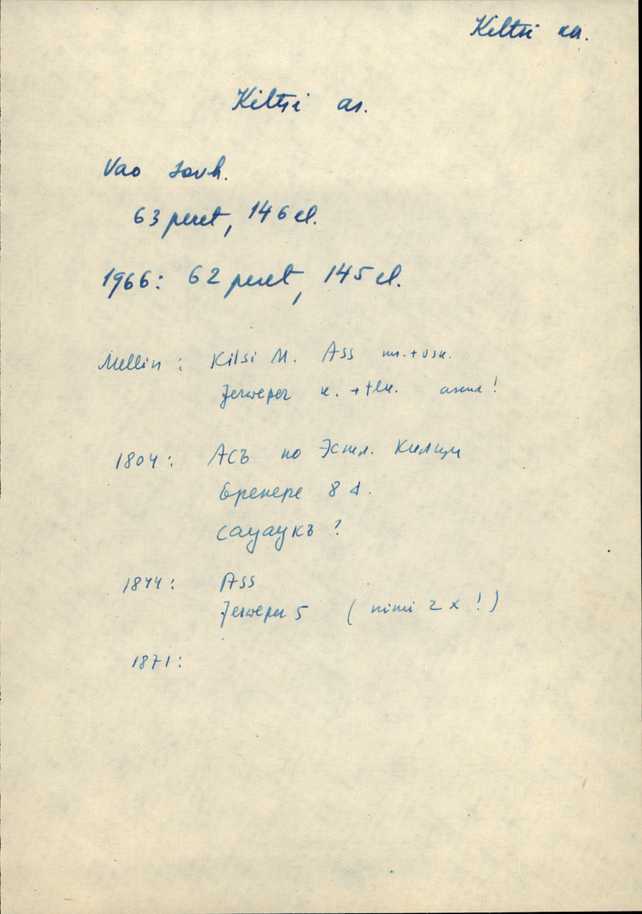 Kiltsi kn.
Kiltsi as.
Vao sovh.
63 peret, 146 el.
1966: 62 peret, 145 el.
Mellin: Kilsi M. Ass
Jerweper
1804: Асъ по Эстл. Килци
8 d.
?
1844: Ass
Jerweper 5 (nimi 2 x!)
1871: